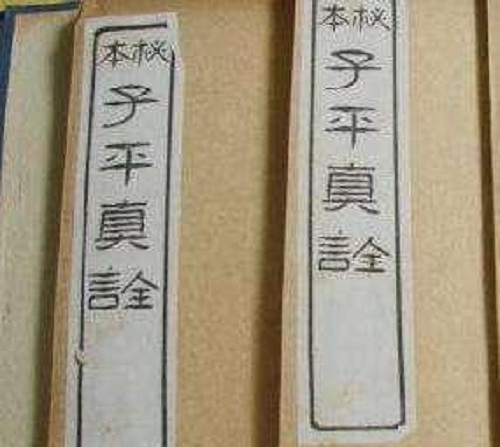 秘本
子平真詮
秘本
子平真詮